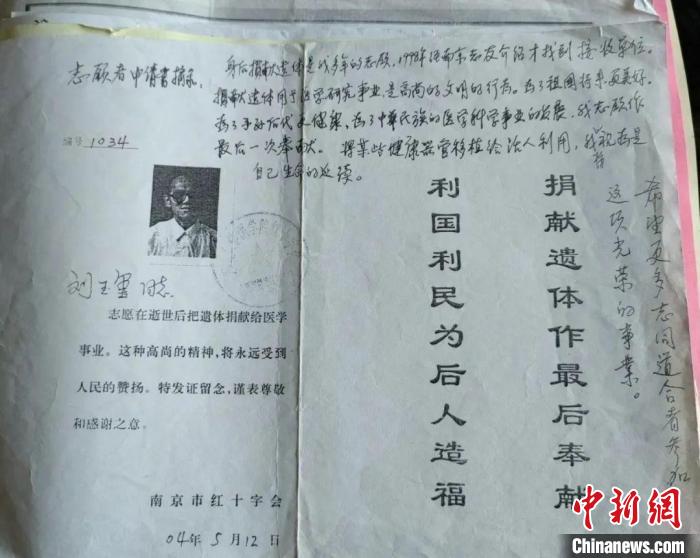 志愿者申请书摘录
身后捐献遗体是我多年的志愿，1998年经南京志友介绍才找到接收单位。
捐献遗体用于医学研究事业，是高尚的文明的行为。为了祖国将来更美好。
为了子孙后代更健康，为了中华民族的医学科学事业的发展，我志愿作
最后一次奉献。将某些健康器官移植给活人利用，我视为是
自己生命的延续。
编号1034
同志
志愿在逝世后把遗体捐献给医学
事业。这种高尚的精神，将永远受到
人民的赞扬。特发证留念，谨表尊敬
和感谢之意。
南京市红十字会
04年5月12日
希望更多志同道合者参加
这项光荣的事业。
捐献遗体作最后奉献
利国利民为后人造福
中新网
Chinanews.com